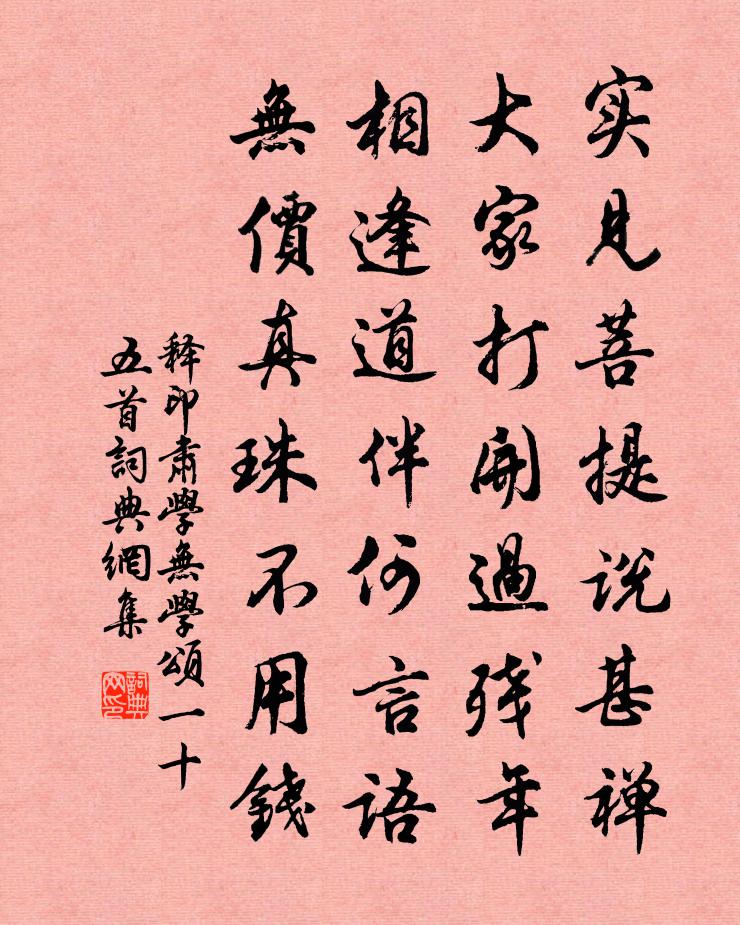 实見菩提说甚禅
大家打開過残年
相逢道伴何言語
無價真珠不用錢
释印肅學無學頌一十
五首詞典網集
詞典网印